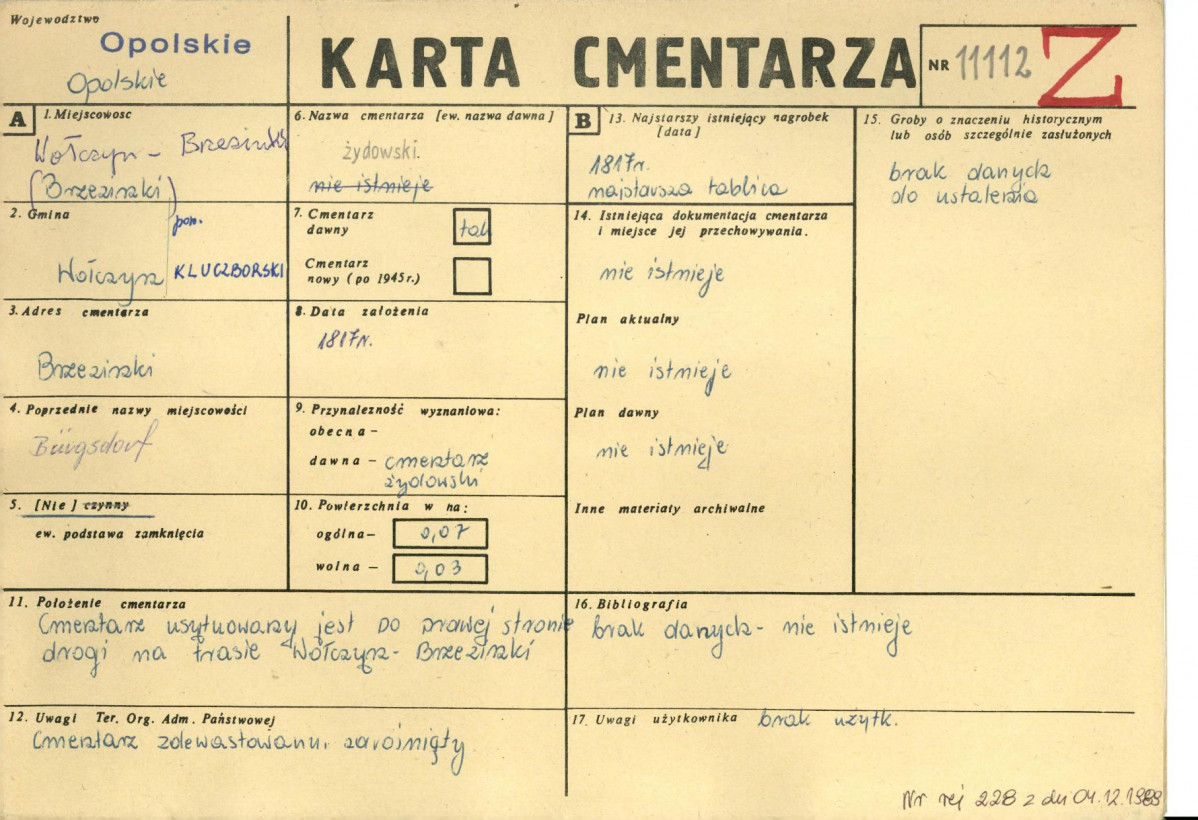 Województwo
Opolskie
Opolskie
KARTA CMENTARZA
NR 11112 Z
A
1. Miejscowość
Wołczyn - Brzezinki
(Brzezinki)
2. Gmina
pow.
Wołczyn KLUCZBORSKI
3. Adres cmentarza
Brzezinki
4. Poprzednie nazwy miejscowości
Bürgsdorf
5. [Nie] czynny
ew. podstawa zamknięcia
6. Nazwa cmentarza [ew. nazwa dawna]
żydowski.
nie istnieje
7. Cmentarz dawny
tak
Cmentarz
nowy (po 1945 r.)
8. Data założenia
1817r.
9. Przynależność wyznaniowa:
obecna –
dawna – cmentarz
żydowski
10. Powierzchnia w ha:
ogólna – 0,07
wolna – 0,03
11. Położenie cmentarza
Cmentarz usytuowany jest po prawej stronie
drogi na trasie Wołczyn - Brzezinki
12. Uwagi Ter. Org. Adm. Państwowej
Cmentarz zdewastowany, zarośnięty
B
13. Najstarszy istniejący nagrobek
[data]
1817r.
najstarsza tablica
14. Istniejąca dokumentacja cmentarza
i miejsce jej przechowywania.
nie istnieje
Plan aktualny
nie istnieje
Plan dawny
nie istnieje
Inne materiały archiwalne
15. Groby o znaczeniu historycznym
lub osób szczególnie zasłużonych
brak danych
do ustalenia
16. Bibliografia
brak danych - nie istnieje
17. Uwagi użytkownika brak użytk.
Nr rej 228 z dn 04.12.1989